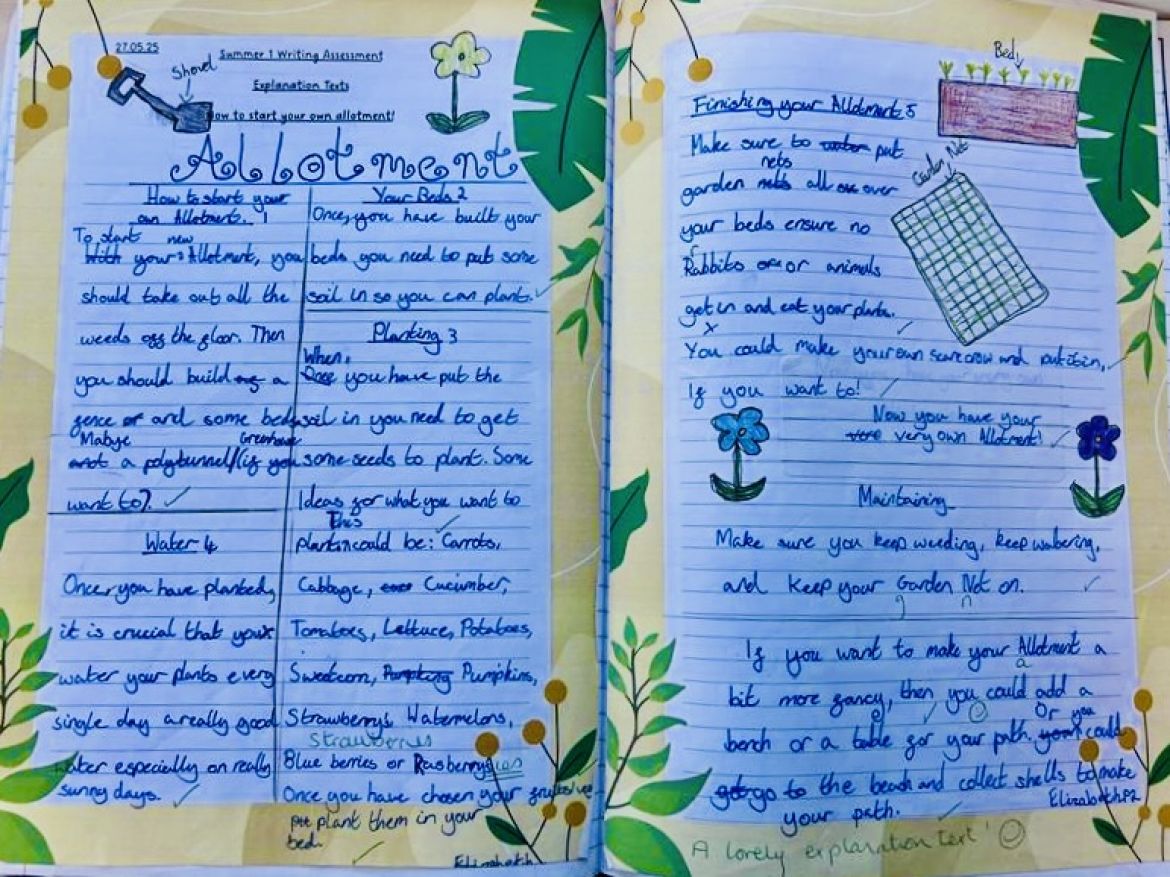 27.05.25
Summer 1 Writing Assessment
Explanation Texts
Shovel
How to start your own allotment!
Allotment
How to start your
own Allotment. 1
To start new
With your Allotment, you
should take out all the
weeds off the floor. Then
you should build a
fence or and some beds
Mabye Greenhouse
a polytunnel/(if you
want to).
Your Beds 2
Once, you have built your
beds you need to put some
soil in so you can plant.
Planting 3
When,
Once you have put the
soil in you need to get
some seeds to plant. Some
Ideas for what you want to
This
plant could be: Carrots,
Cabbage, Cucumber,
Tomatoes, Lettuce, Potatoes,
Sweetcorn, Pumpking Pumpkins,
Strawberrys Watermelons,
strawberries
Blue berries or Rasberrys ies
Once you have chosen your
plant them in your
bed.
Elizabeth
Water 4
Once, you have planted,
it is crucial that you
water your plants every
single day a really good
water especially on really
sunny days.
Bed
Finishing your Allotment 5
Make sure to water put
nets
garden all over
Garden Net
your beds ensure no
r
Rabbits or animals
get in and eat your plants.
You could make your own scarecrow and put it in,
If you want to!
Now you have your
very own Allotment!
Maintaining
Make sure you keep weeding, keep watering,
and keep your Garden Net on.
g n
If you want to make your Allotment a
a
bit more fancy, then you could add a
Or you
bench or a table for your path. your could
got go to the beach and collect shells to make
Elizabeth P2
your path.
A lovely explanation text!